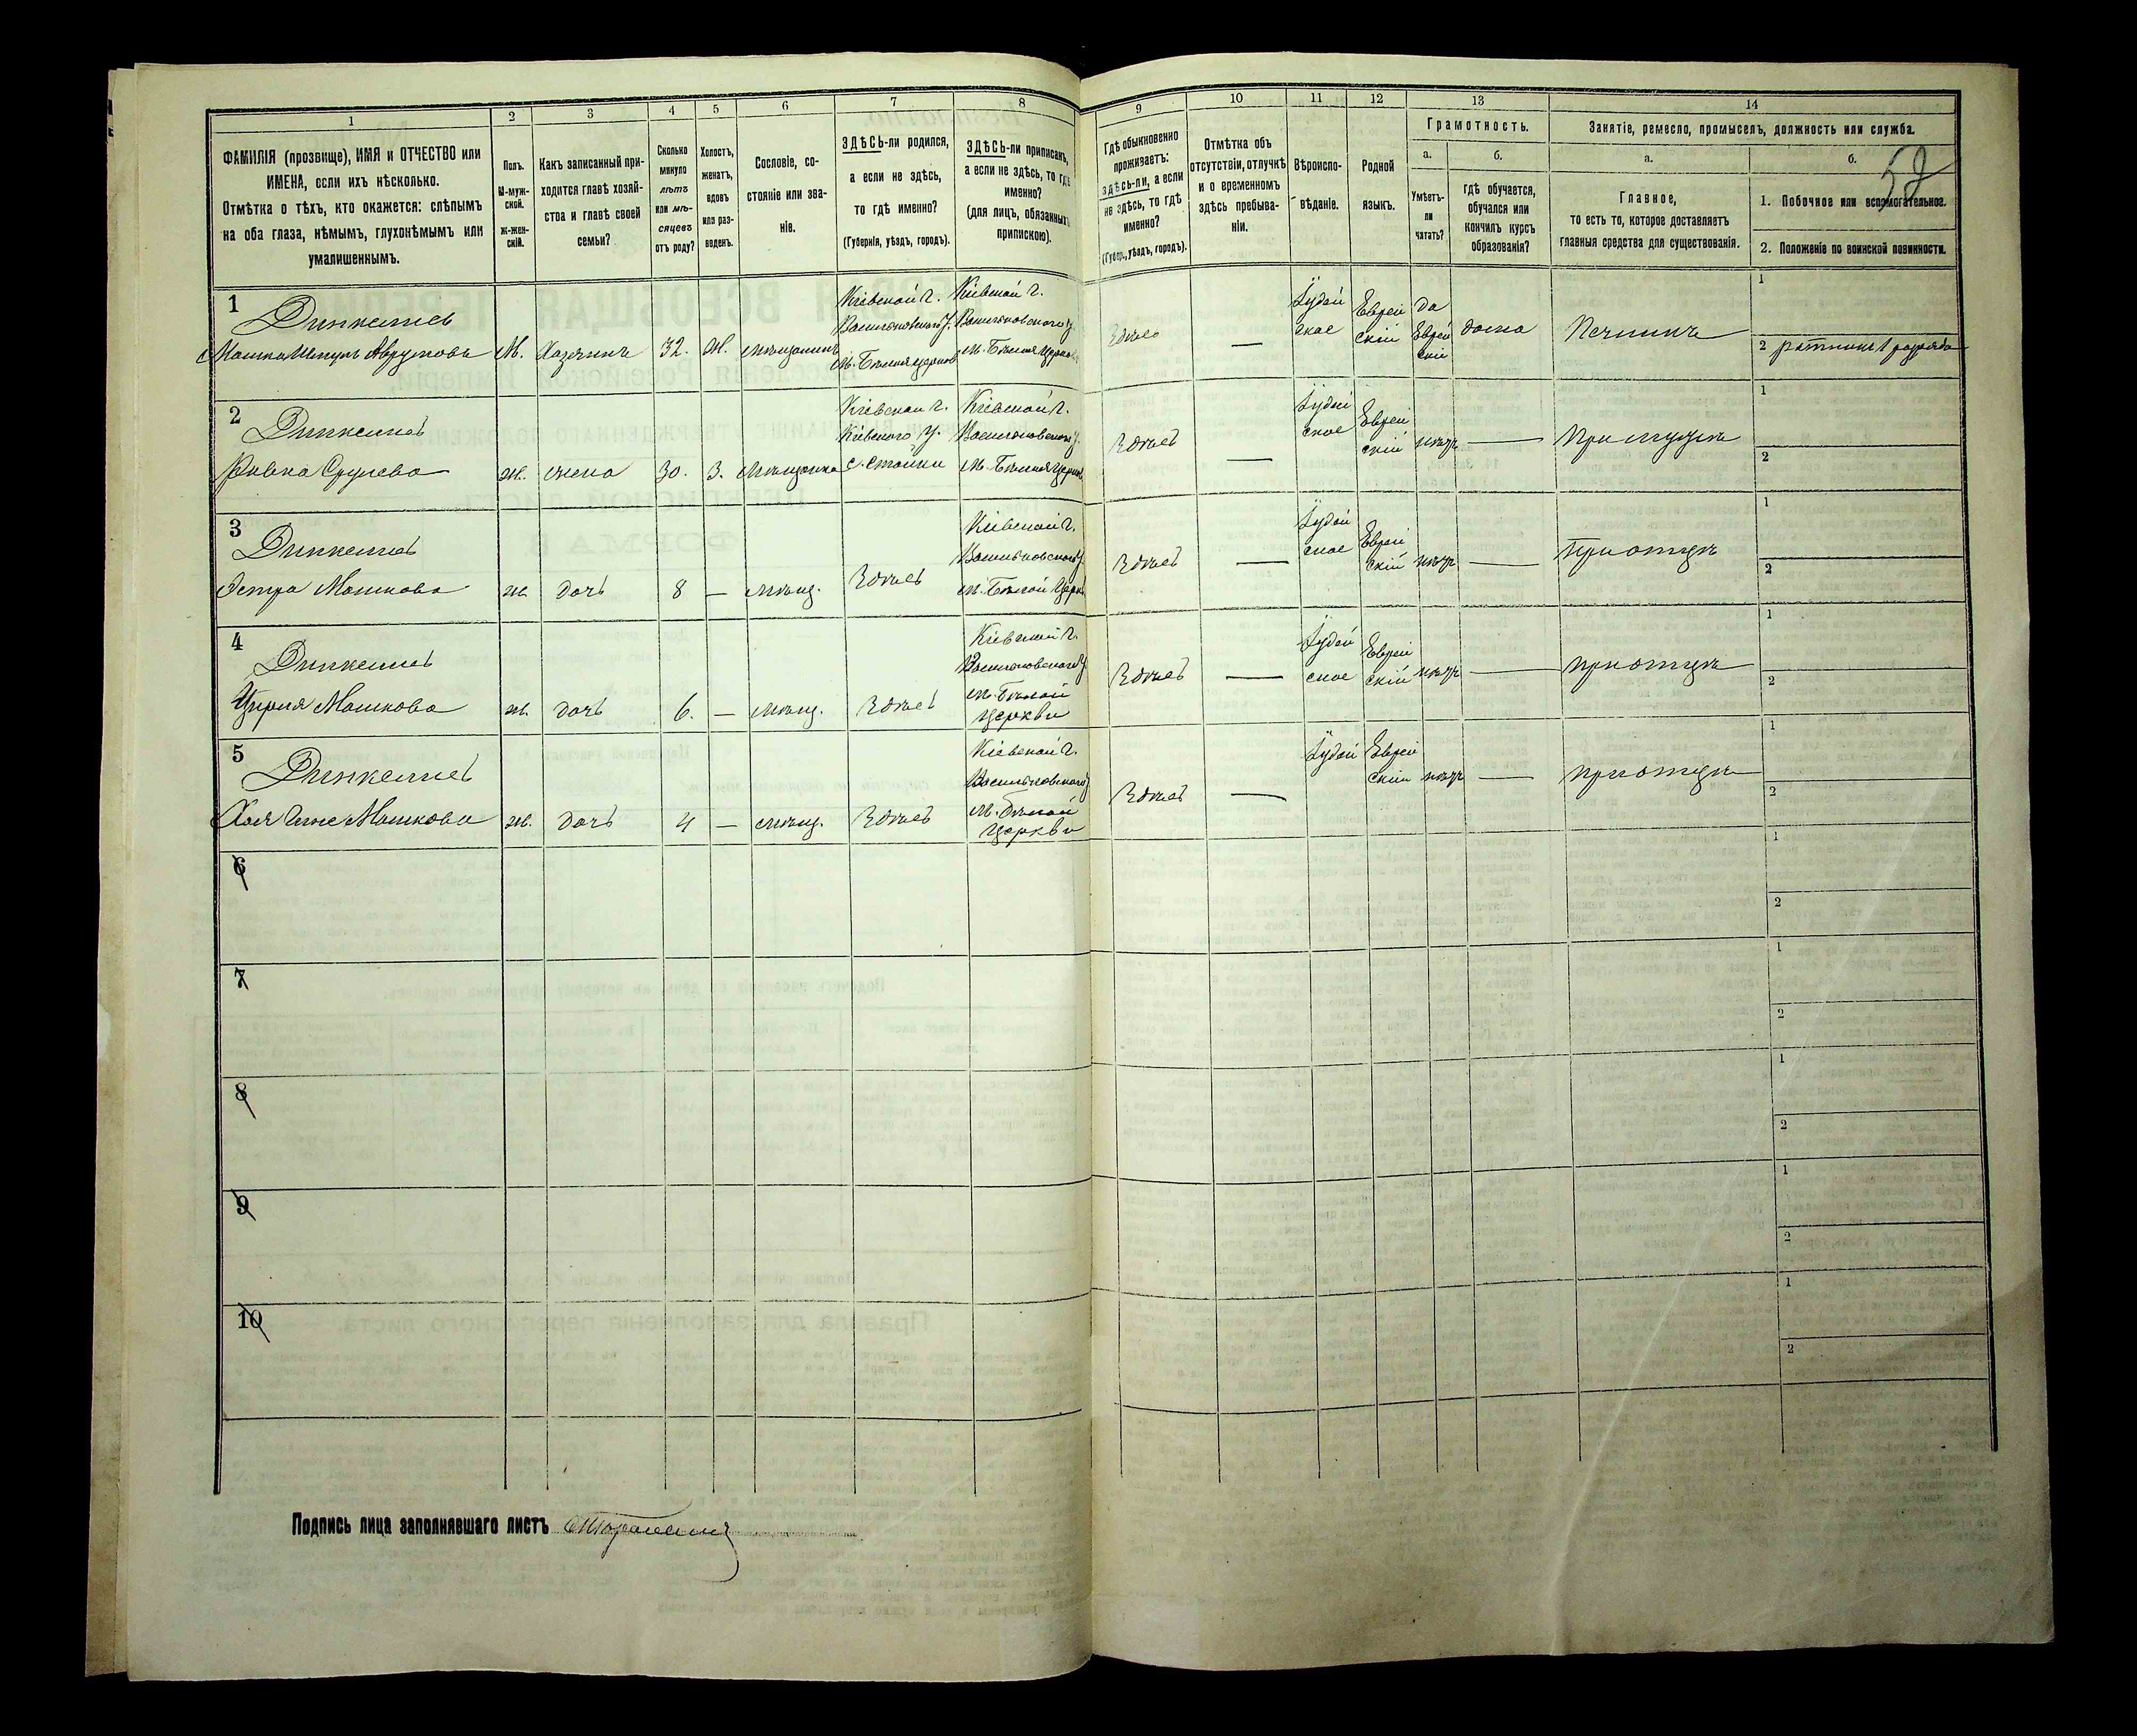 1
2
3
4
5
6
7
8
9
10
11
12
13
14
ФАМИЛІЯ (прозвище), ИМЯ и ОТЧЕСТВО или
ИМЕНА, если ихъ нѣсколько.
Отмѣтка о тѣхъ, кто окажется: слѣпымъ
на оба глаза, нѣмымъ, глухонѣмымъ или
умалишеннымъ.
Полъ.
М-муж-
ской.
Ж-жен-
скій.
Какъ записанный при-
ходится главѣ хозяй-
ства и главѣ своей
семьи?
Сколько
минуло
лѣтъ
или мѣ-
сяцевъ
отъ роду?
Холостъ,
женатъ,
вдовъ
или раз-
веденъ.
Сословіе, со-
стояніе или зва-
ніе.
ЗДѢСЬ-ли родился,
а если не здѣсь,
то гдѣ именно?
(Губернія, уѣздъ, городъ).
ЗДѢСЬ-ли приписанъ,
а если не здѣсь, то гдѣ
именно?
(для лицъ, обязанныхъ
припискою).
Гдѣ обыкновенно
проживаетъ:
здѣсь-ли, а если
не здѣсь, то гдѣ
именно?
(Губер., уѣздъ, городъ).
Отмѣтка объ
отсутствіи, отлучкѣ
и о временномъ
здѣсь пребыва-
ніи.
Вѣроиспо-
вѣданіе.
Родной
языкъ.
Грамотность.
а.
б.
Умѣетъ-
ли
читать?
гдѣ обучается,
обучался или
кончилъ курсъ
образованія?
Занятіе, ремесло, промыселъ, должность или служба.
а.
б.
52
Главное,
то есть то, которое доставляетъ
главныя средства для существованія.
1. Побочное или вспомогательное.
2. Положеніе по воинской повинности.
1
Динкелисъ
Мошко Аврумовъ
М. Хазяинъ 32. Ж. мѣщанинъ
Кіевской г.
Васильковскаго у.
м. Бѣлая Церковь
Кіевской г.
Васильковскаго у.
м. Бѣлая Церковь
Здѣсь
—
Іудей
ское
Еврей
скій
да
Еврей
скій
дома
Печникъ
1
2 ратникъ 1 разряда
2
Динкелисъ
Ривка Срулева
ж. жена 30. З. мѣщанка
Кіевской г.
Кіевского у.
с. Стайки
Кіевской г.
Васильковского у.
м. Бѣлая Церковь
Здѣсь
—
Іудей
ское
Еврей
скій
нѣтъ
—
При мужѣ
1
2
3
Динкелисъ
Эстра Мошкова
ж. дочь 8 — мѣщ.
Здѣсь
Кіевской г.
Васильковского у.
м. Бѣлой Церкви
Здѣсь
—
Іудей
ское
Еврей
скій
нѣтъ
—
При отцѣ
1
2
4
Динкелисъ
Мошкова
ж. дочь 6. — мѣщ.
Здѣсь
Кіевской г.
Васильковского у.
м. Бѣлой
Церкви
Здѣсь
—
Іудей
ское
Еврей
скій
нѣтъ
—
при отцѣ
1
2
5
Динкелисъ
Мошкова
ж. дочь 4 — мѣщ.
Здѣсь
Кіевской г.
Васильковского у.
м. Бѣлой
Церкви
Здѣсь
—
Іудей
Еврей
скій
нѣтъ
—
при отцѣ
1
2
6
1
2
7
1
2
8
1
2
9
1
2
10
1
2
Подпись лица заполнявшаго листъ